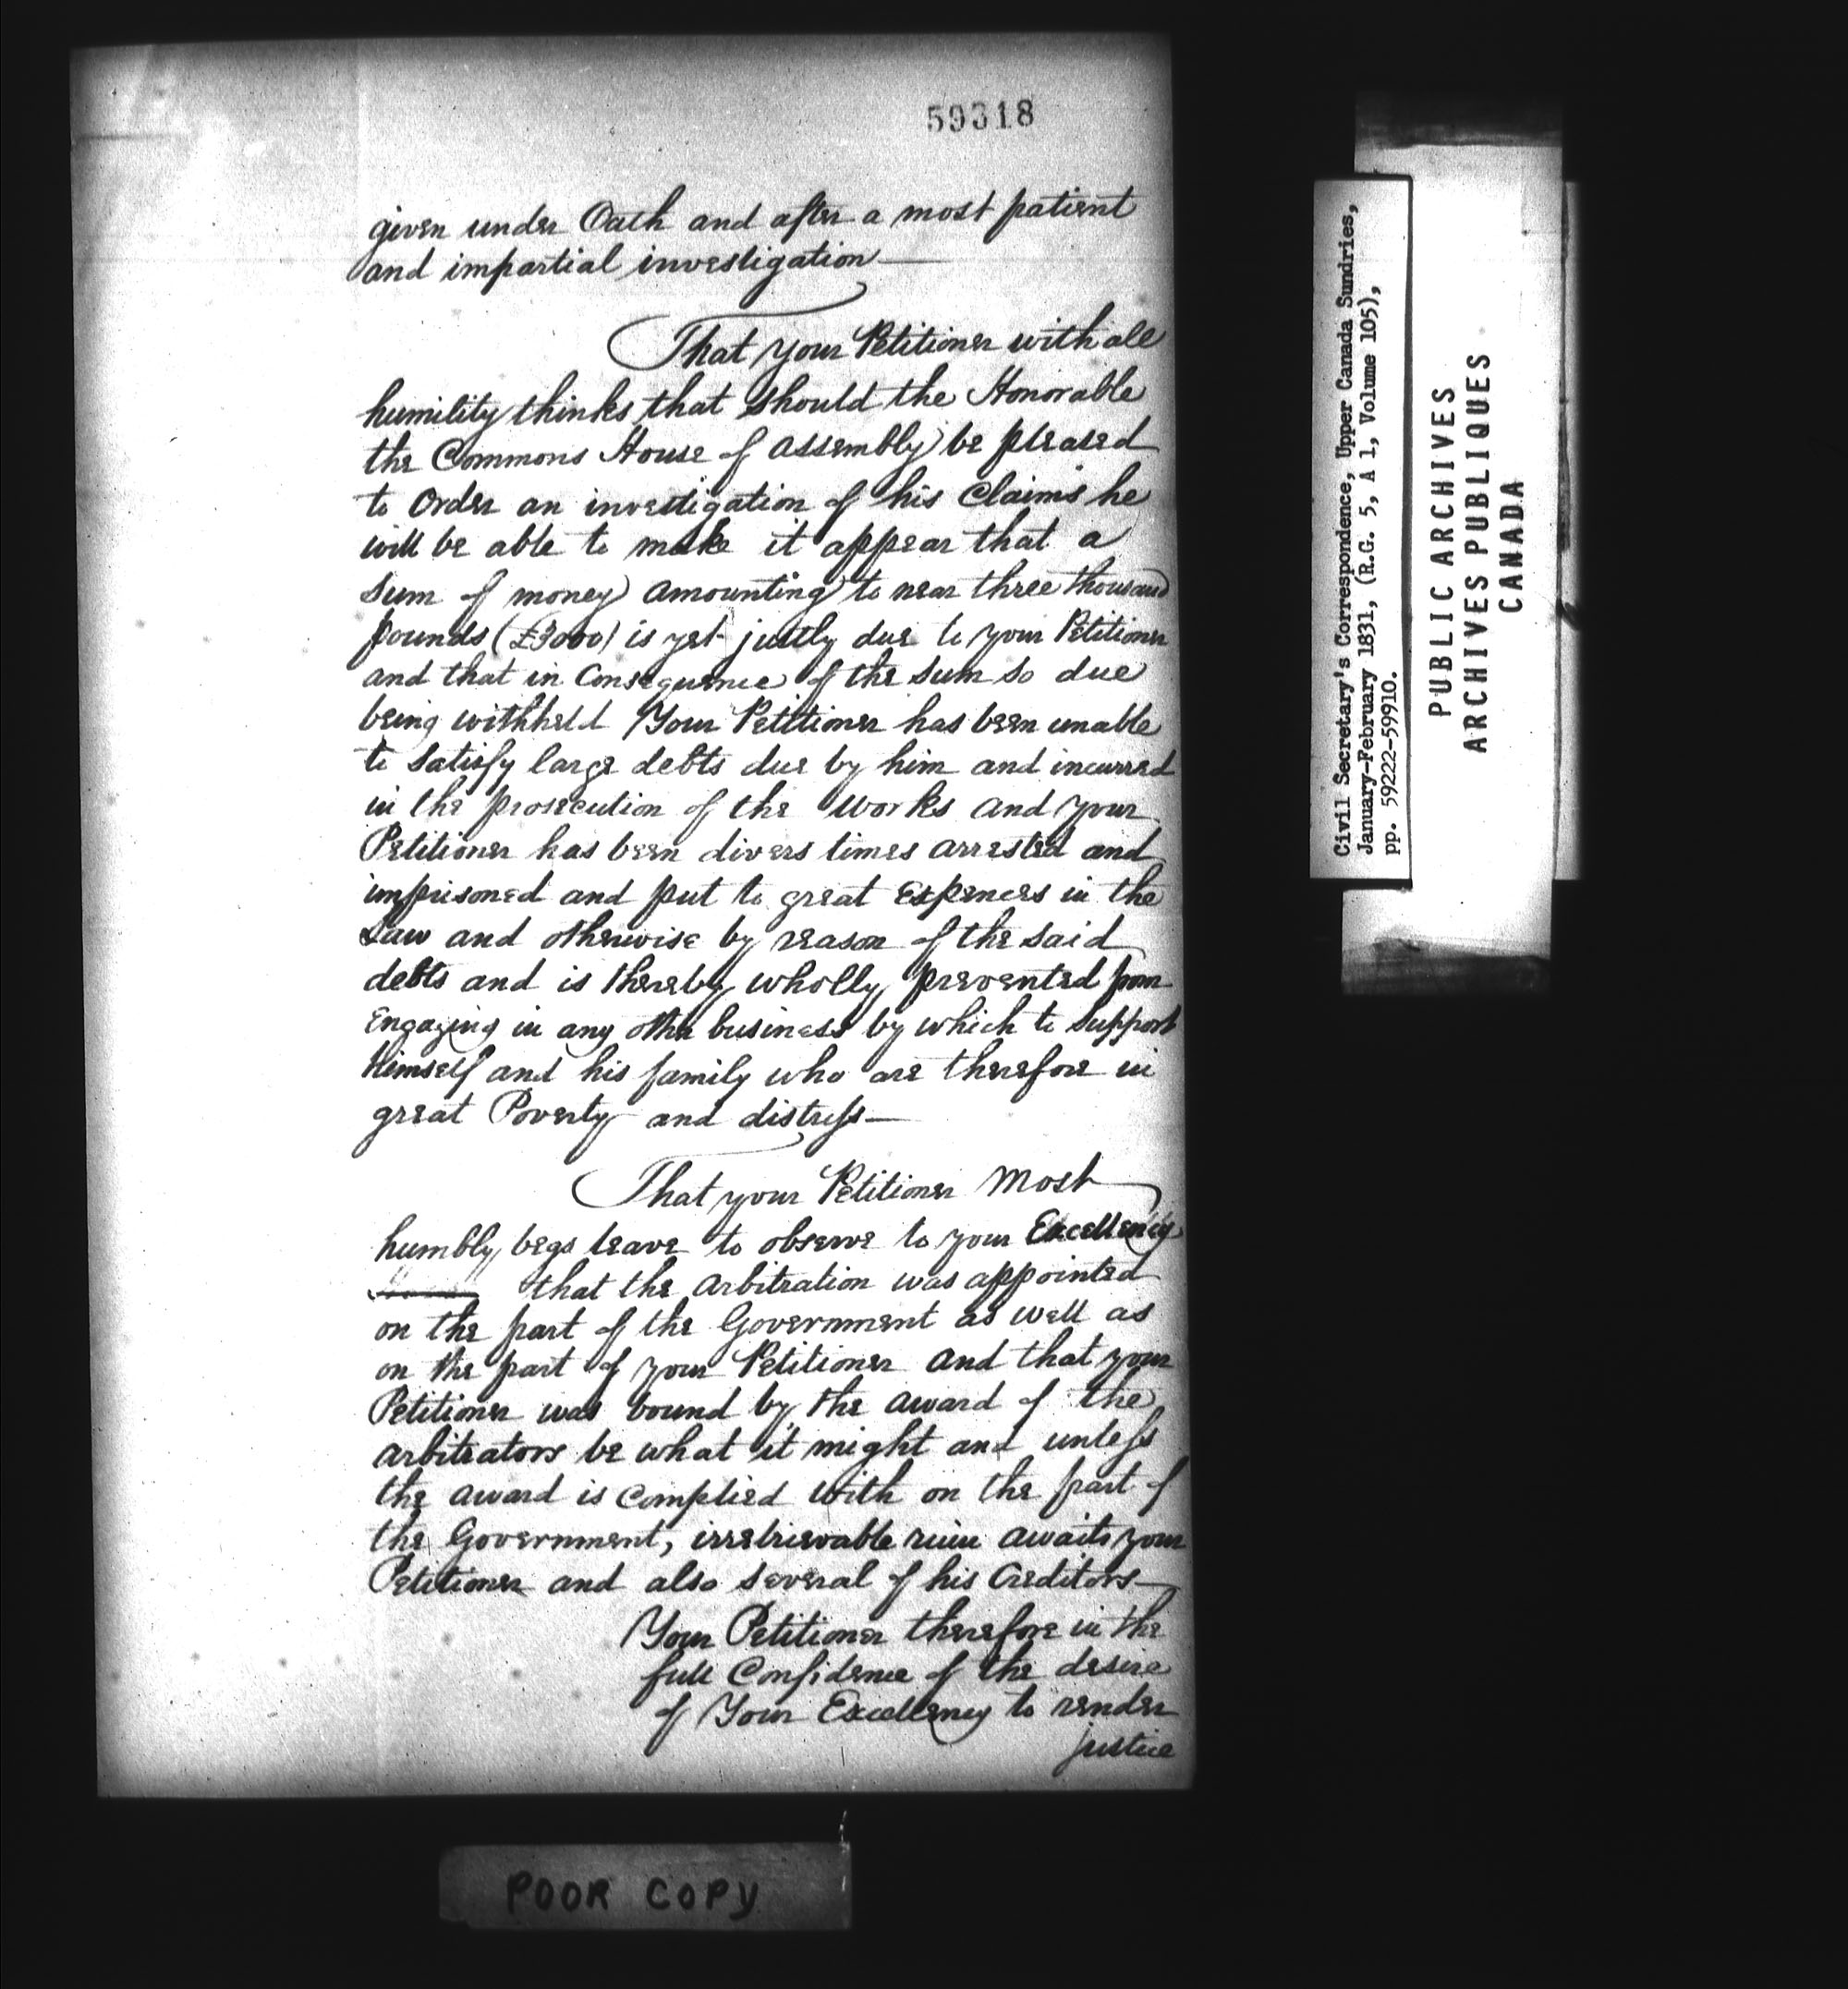 59318
given under Oath and after a most patient
and impartial investigation—
That your Petitioner with all
humility thinks, that should the Honorable
the Commons House of assembly be pleased
to Order an investigation of his Claims he
will be able to make it appear that a
sum of money amounting to near three thousand
pounds (£3000) is yet justly due to your Petitioner
and that in Consequence of the sum so due
being withheld Your Petitioner has been unable
to satisfy large debts due by him and incurred
in the prosecution of the Works and your
Petitioner has been divers times arrested and
imprisoned and put to great Expences in the
Law and otherwise by reason of the said
debts and is thereby wholly prevented from
Engaging in any other business by which to support
Himself and his family who are therefore in
great Poverty and distress—
That your Petitioner Most
humbly begs leave to observe to your Excellency
that the Arbitration was appointed
on the part of the Government as well as
on the part of your Petitioner and that your
Petitioner was bound by the award of the
arbitrators be what it might and unless
the award is complied with on the part of
the Government, irretrievable ruin awaits your
Petitioner and also several of his Creditors—
Your Petitioner therefore in the
full Confidence of the desire
of Your Excellency to render
justice
POOR COPY
Civil Secretary's Correspondence, Upper Canada Sundries,
January-February 1831, (R.G. 5, A 1, Volume 105),
pp. 59222-59910.
PUBLIC ARCHIVES
ARCHIVES PUBLIQUES
CANADA